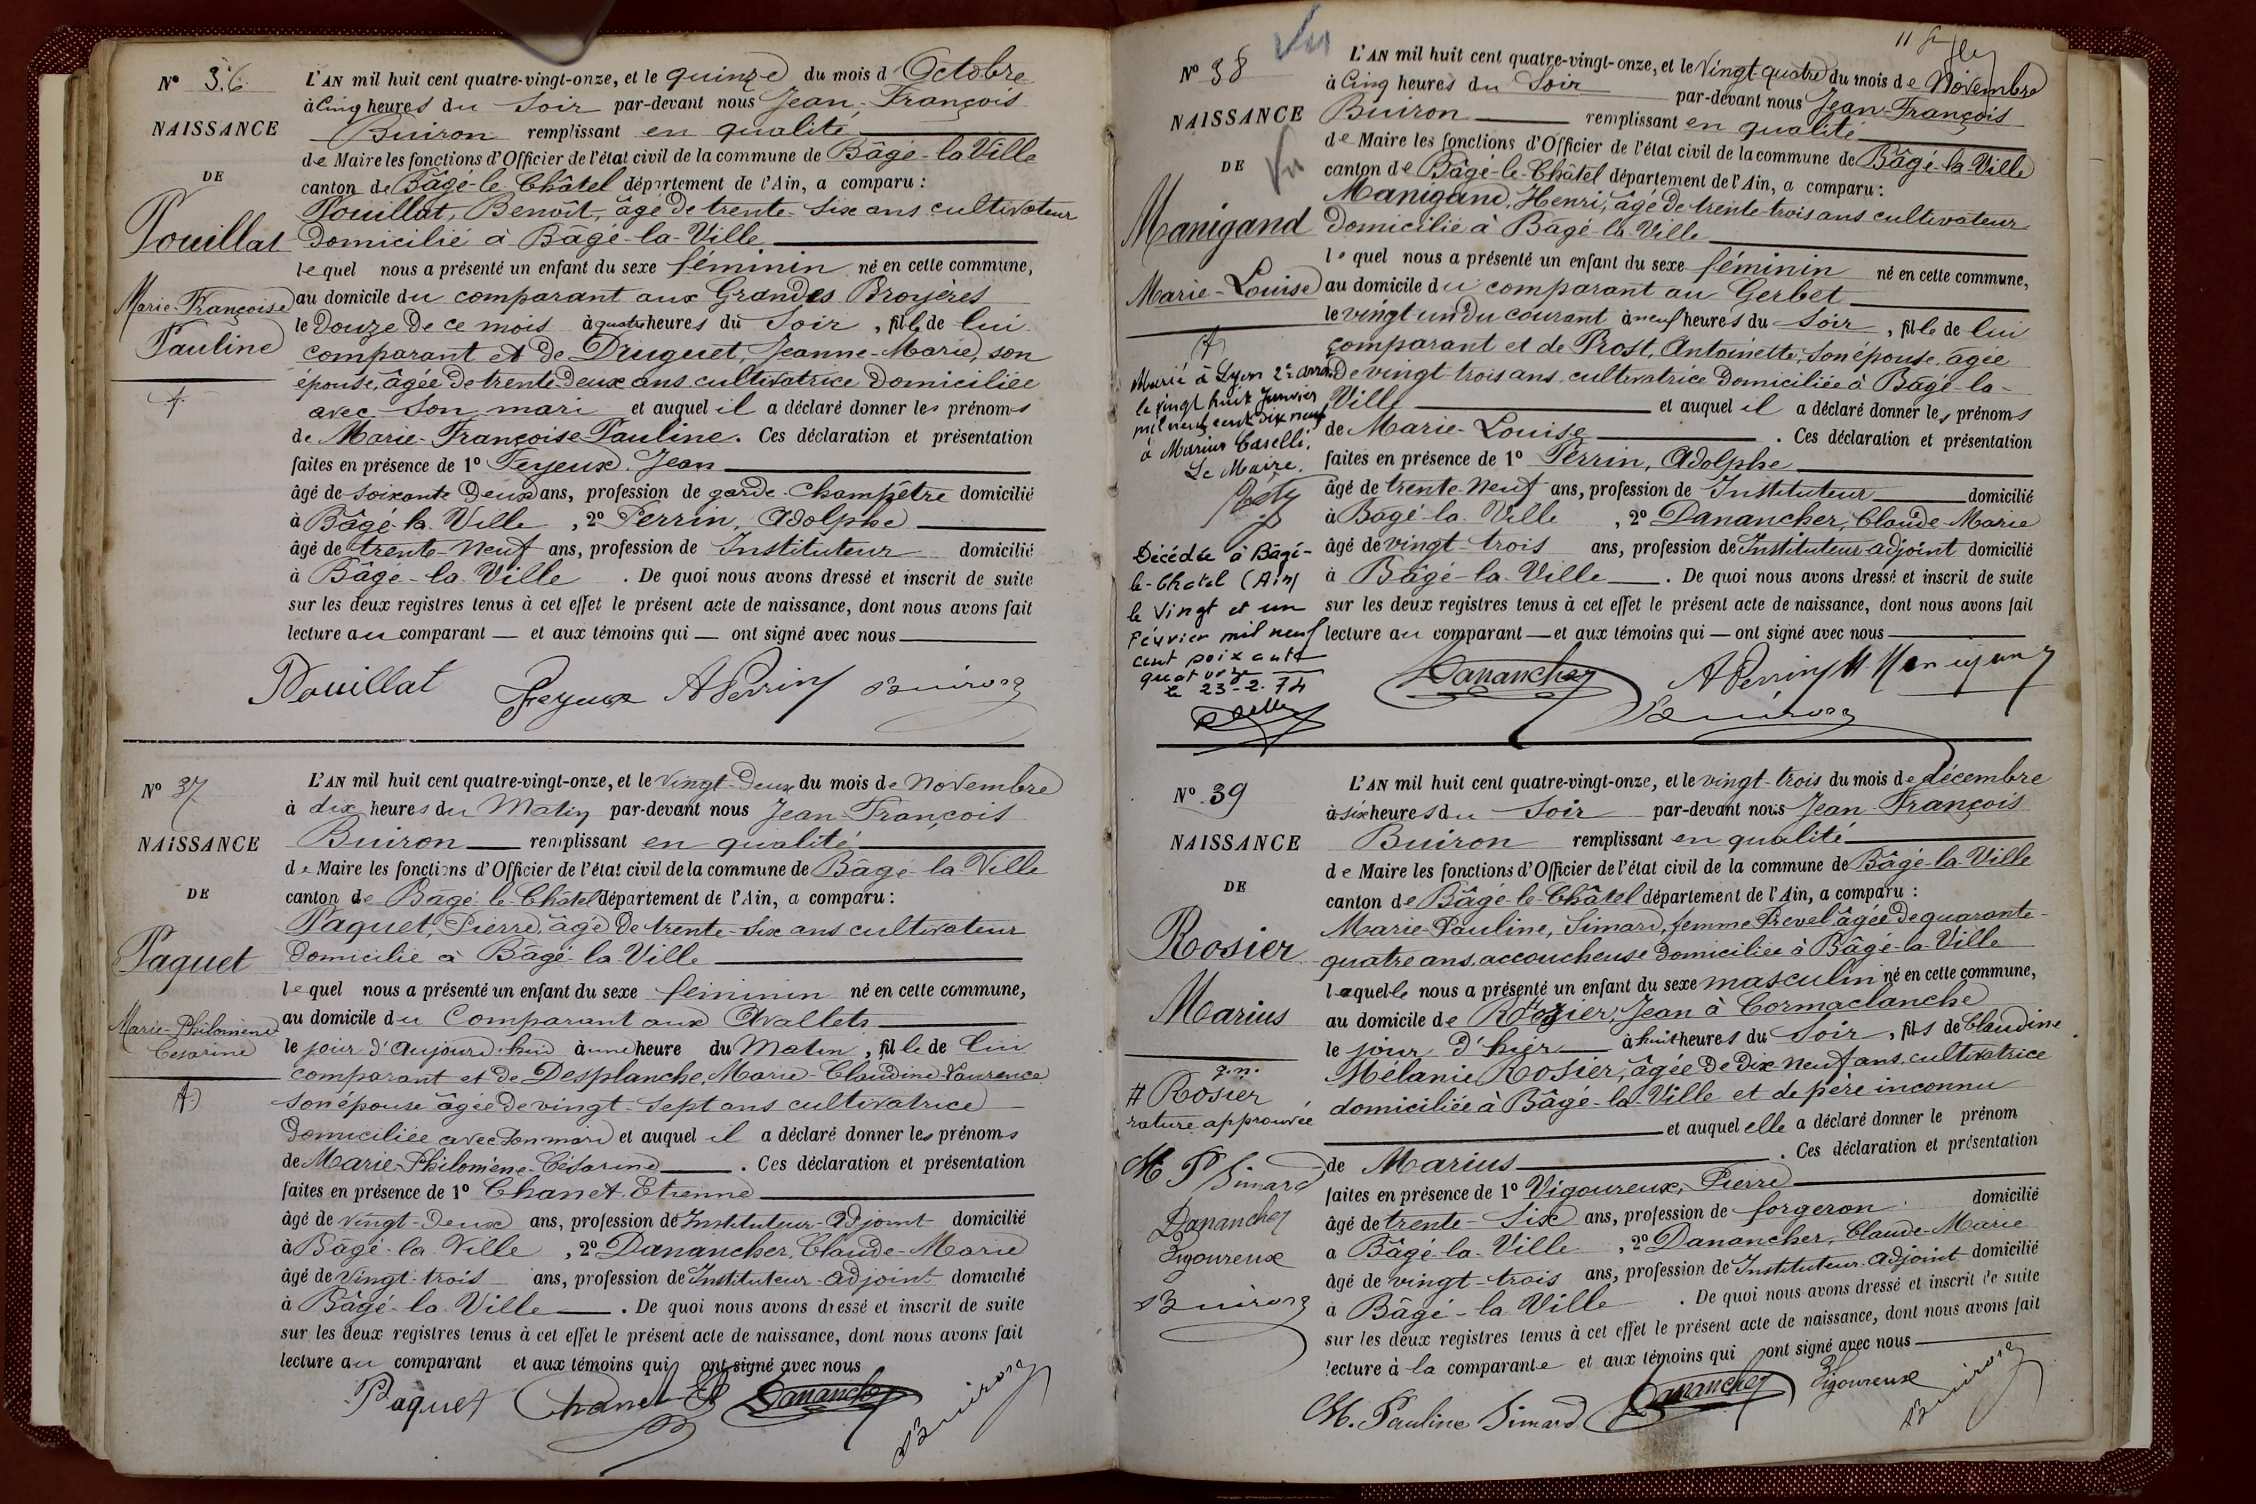 Nº 36
NAISSANCE
DE
Pouillat
Marie-Françoise
Pauline
L'AN mil huit cent quatre-vingt-onze, et le quinze du mois d'Octobre
à Cinq heures du Soir par-devant nous Jean-François
Buiron remplissant en qualité
de Maire les fonctions d'Officier de l'état civil de la commune de Bâgé-la-Ville
canton de Bâgé-le-Châtel département de l'Ain, a comparu :
Pouillat, Benoît, âgé de trente-six ans cultivateur
domicilié à Bâgé-la-Ville
lequel nous a présenté un enfant du sexe féminin né en cette commune,
au domicile du comparant aux Grandes Broyères
le douze de ce mois à quatre heures du Soir, fille de lui
comparant et de Druguet, Jeanne-Marie, son
épouse, âgée de trente-deux ans cultivatrice domiciliée
avec son mari et auquel il a déclaré donner les prénoms
de Marie-Françoise-Pauline. Ces déclaration et présentation
faites en présence de 1º Feyeux, Jean
âgé de soixante deux ans, profession de garde-Champêtre domicilié
à Bâgé-la-Ville, 2º Perrin, Adolphe
âgé de trente-neuf ans, profession de Instituteur domicilié
à Bâgé-la-Ville. De quoi nous avons dressé et inscrit de suite
sur les deux registres tenus à cet effet le présent acte de naissance, dont nous avons fait
lecture au comparant — et aux témoins qui — ont signé avec nous
Pouillat Feyeux A Perrin Buiron
Nº 37
NAISSANCE
DE
Paquet
Marie-Philomène
Césarine
L'AN mil huit cent quatre-vingt-onze, et le vingt-Deux du mois de Novembre
à dix heures du Matin par-devant nous Jean-François
Buiron remplissant en qualité
de Maire les fonctions d'Officier de l'état civil de la commune de Bâgé-la-Ville
canton de Bâgé-le-Châtel département de l'Ain, a comparu :
Paquet, Pierre, âgé de trente-six ans cultivateur
domicilié à Bâgé-la-Ville
lequel nous a présenté un enfant du sexe féminin né en cette commune,
au domicile du Comparant aux Avallets
le jour d'aujourd'hui à une heure du Matin, fille de lui
comparant et de Desplanche, Marie-Claudine-Laurence
son épouse âgée de vingt-sept ans cultivatrice
domiciliée avec son mari et auquel il a déclaré donner les prénoms
de Marie-Philomène-Césarine. Ces déclaration et présentation
faites en présence de 1º Chanet, Etienne
âgé de vingt-deux ans, profession de Instituteur-adjoint domicilié
à Bâgé-la-Ville, 2º Danancher, Claude-Marie
âgé de vingt-trois ans, profession de Instituteur-adjoint domicilié
à Bâgé-la-Ville. De quoi nous avons dressé et inscrit de suite
sur les deux registres tenus à cet effet le présent acte de naissance, dont nous avons fait
lecture au comparant et aux témoins qui ont signé avec nous
Paquet Chanet E Danancher Buiron
11
Vu
Nº 38
NAISSANCE
DE
Vu
Manigand
Marie-Louise
Marié à Lyon 2e arrt
le vingt huit Janvier
mil neuf cent dix neuf
à Marius Caselli.
Le Maire.
Décédée à Bâgé-
le-Châtel (Ain)
le vingt et un
Février mil neuf
cent soixante
quatorze
le 23-2-74
L'AN mil huit cent quatre-vingt-onze, et le vingt quatre du mois de Novembre
à Cinq heures du Soir par-devant nous Jean-François
Buiron remplissant en qualité
de Maire les fonctions d'Officier de l'état civil de la commune de Bâgé-la-Ville
canton de Bâgé-le-Châtel département de l'Ain, a comparu :
Manigand, Henri, âgé de trente-trois ans cultivateur
domicilié à Bâgé-la-Ville
lequel nous a présenté un enfant du sexe féminin né en cette commune,
au domicile du comparant au Gerbet
le vingt-un du courant à neuf heures du Soir, fille de lui
comparant et de Prost, Antoinette, son épouse âgée
de vingt-trois ans cultivatrice domiciliée à Bâgé-la-
Ville et auquel il a déclaré donner les prénoms
de Marie-Louise. Ces déclaration et présentation
faites en présence de 1º Perrin, Adolphe
âgé de trente-neuf ans, profession de Instituteur domicilié
à Bâgé-la-Ville, 2º Danancher, Claude-Marie
âgé de vingt-trois ans, profession de Instituteur adjoint domicilié
à Bâgé-la-Ville. De quoi nous avons dressé et inscrit de suite
sur les deux registres tenus à cet effet le présent acte de naissance, dont nous avons fait
lecture au comparant — et aux témoins qui — ont signé avec nous
Danancher A Perrin H. Manigand
Buiron
Nº 39
NAISSANCE
DE
Rosier
Marius
# Rosier
rature approuvée
M P Simard
Danancher
Vigoureux
Buiron
L'AN mil huit cent quatre-vingt-onze, et le vingt-trois du mois de décembre
à six heures du Soir par-devant nous Jean-François
Buiron remplissant en qualité
de Maire les fonctions d'Officier de l'état civil de la commune de Bâgé-la-Ville
canton de Bâgé-le-Châtel département de l'Ain, a comparu :
Marie-Pauline, Simard, femme Prevel âgée de quarante-
quatre ans, accoucheuse domiciliée à Bâgé-la-Ville
laquelle nous a présenté un enfant du sexe masculin né en cette commune,
au domicile de Rosier, Jean à Cormaclanche
le jour d'hier à huit heures du Soir, fils de Claudine
Mélanie Rosier, âgée de dix-neuf ans, cultivatrice
domiciliée à Bâgé-la-Ville et de père inconnu
et auquel elle a déclaré donner le prénom
de Marius. Ces déclaration et présentation
faites en présence de 1º Vigoureux, Pierre
âgé de trente-six ans, profession de forgeron domicilié
à Bâgé-la-Ville, 2º Danancher, Claude-Marie
âgé de vingt-trois ans, profession de Instituteur adjoint domicilié
à Bâgé-la-Ville. De quoi nous avons dressé et inscrit de suite
sur les deux registres tenus à cet effet le présent acte de naissance, dont nous avons fait
lecture à la comparante et aux témoins qui ont signé avec nous
M. Pauline Simard Danancher Vigoureux Buiron